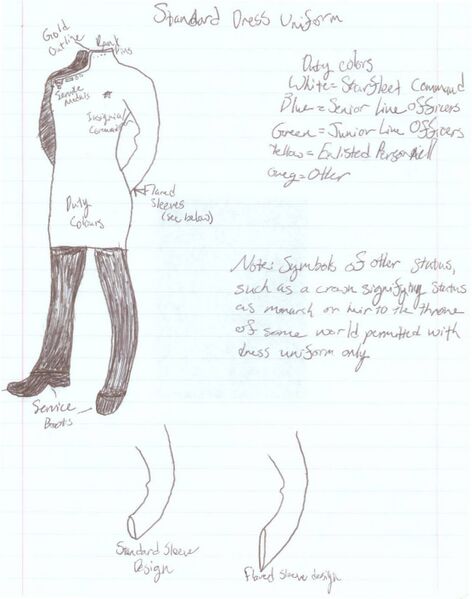 Standard Dress Uniform
Gold
Outline
Rank
Pins
Service
Medals
Insignia/
Duty
Colours
Flared
Sleeves
(see below)
Service
Boots
Duty colors
White = Starfleet Command
Blue = Senior Line Officers
Green = Junior Line Officers
Yellow = Enlisted Personell
Grey = Other
Note: Symbols of other status,
such as a crown signifying status
as monarch or heir to the throne
of some world permitted with
dress uniform only
Standard Sleeve
Design
Flared sleeve design